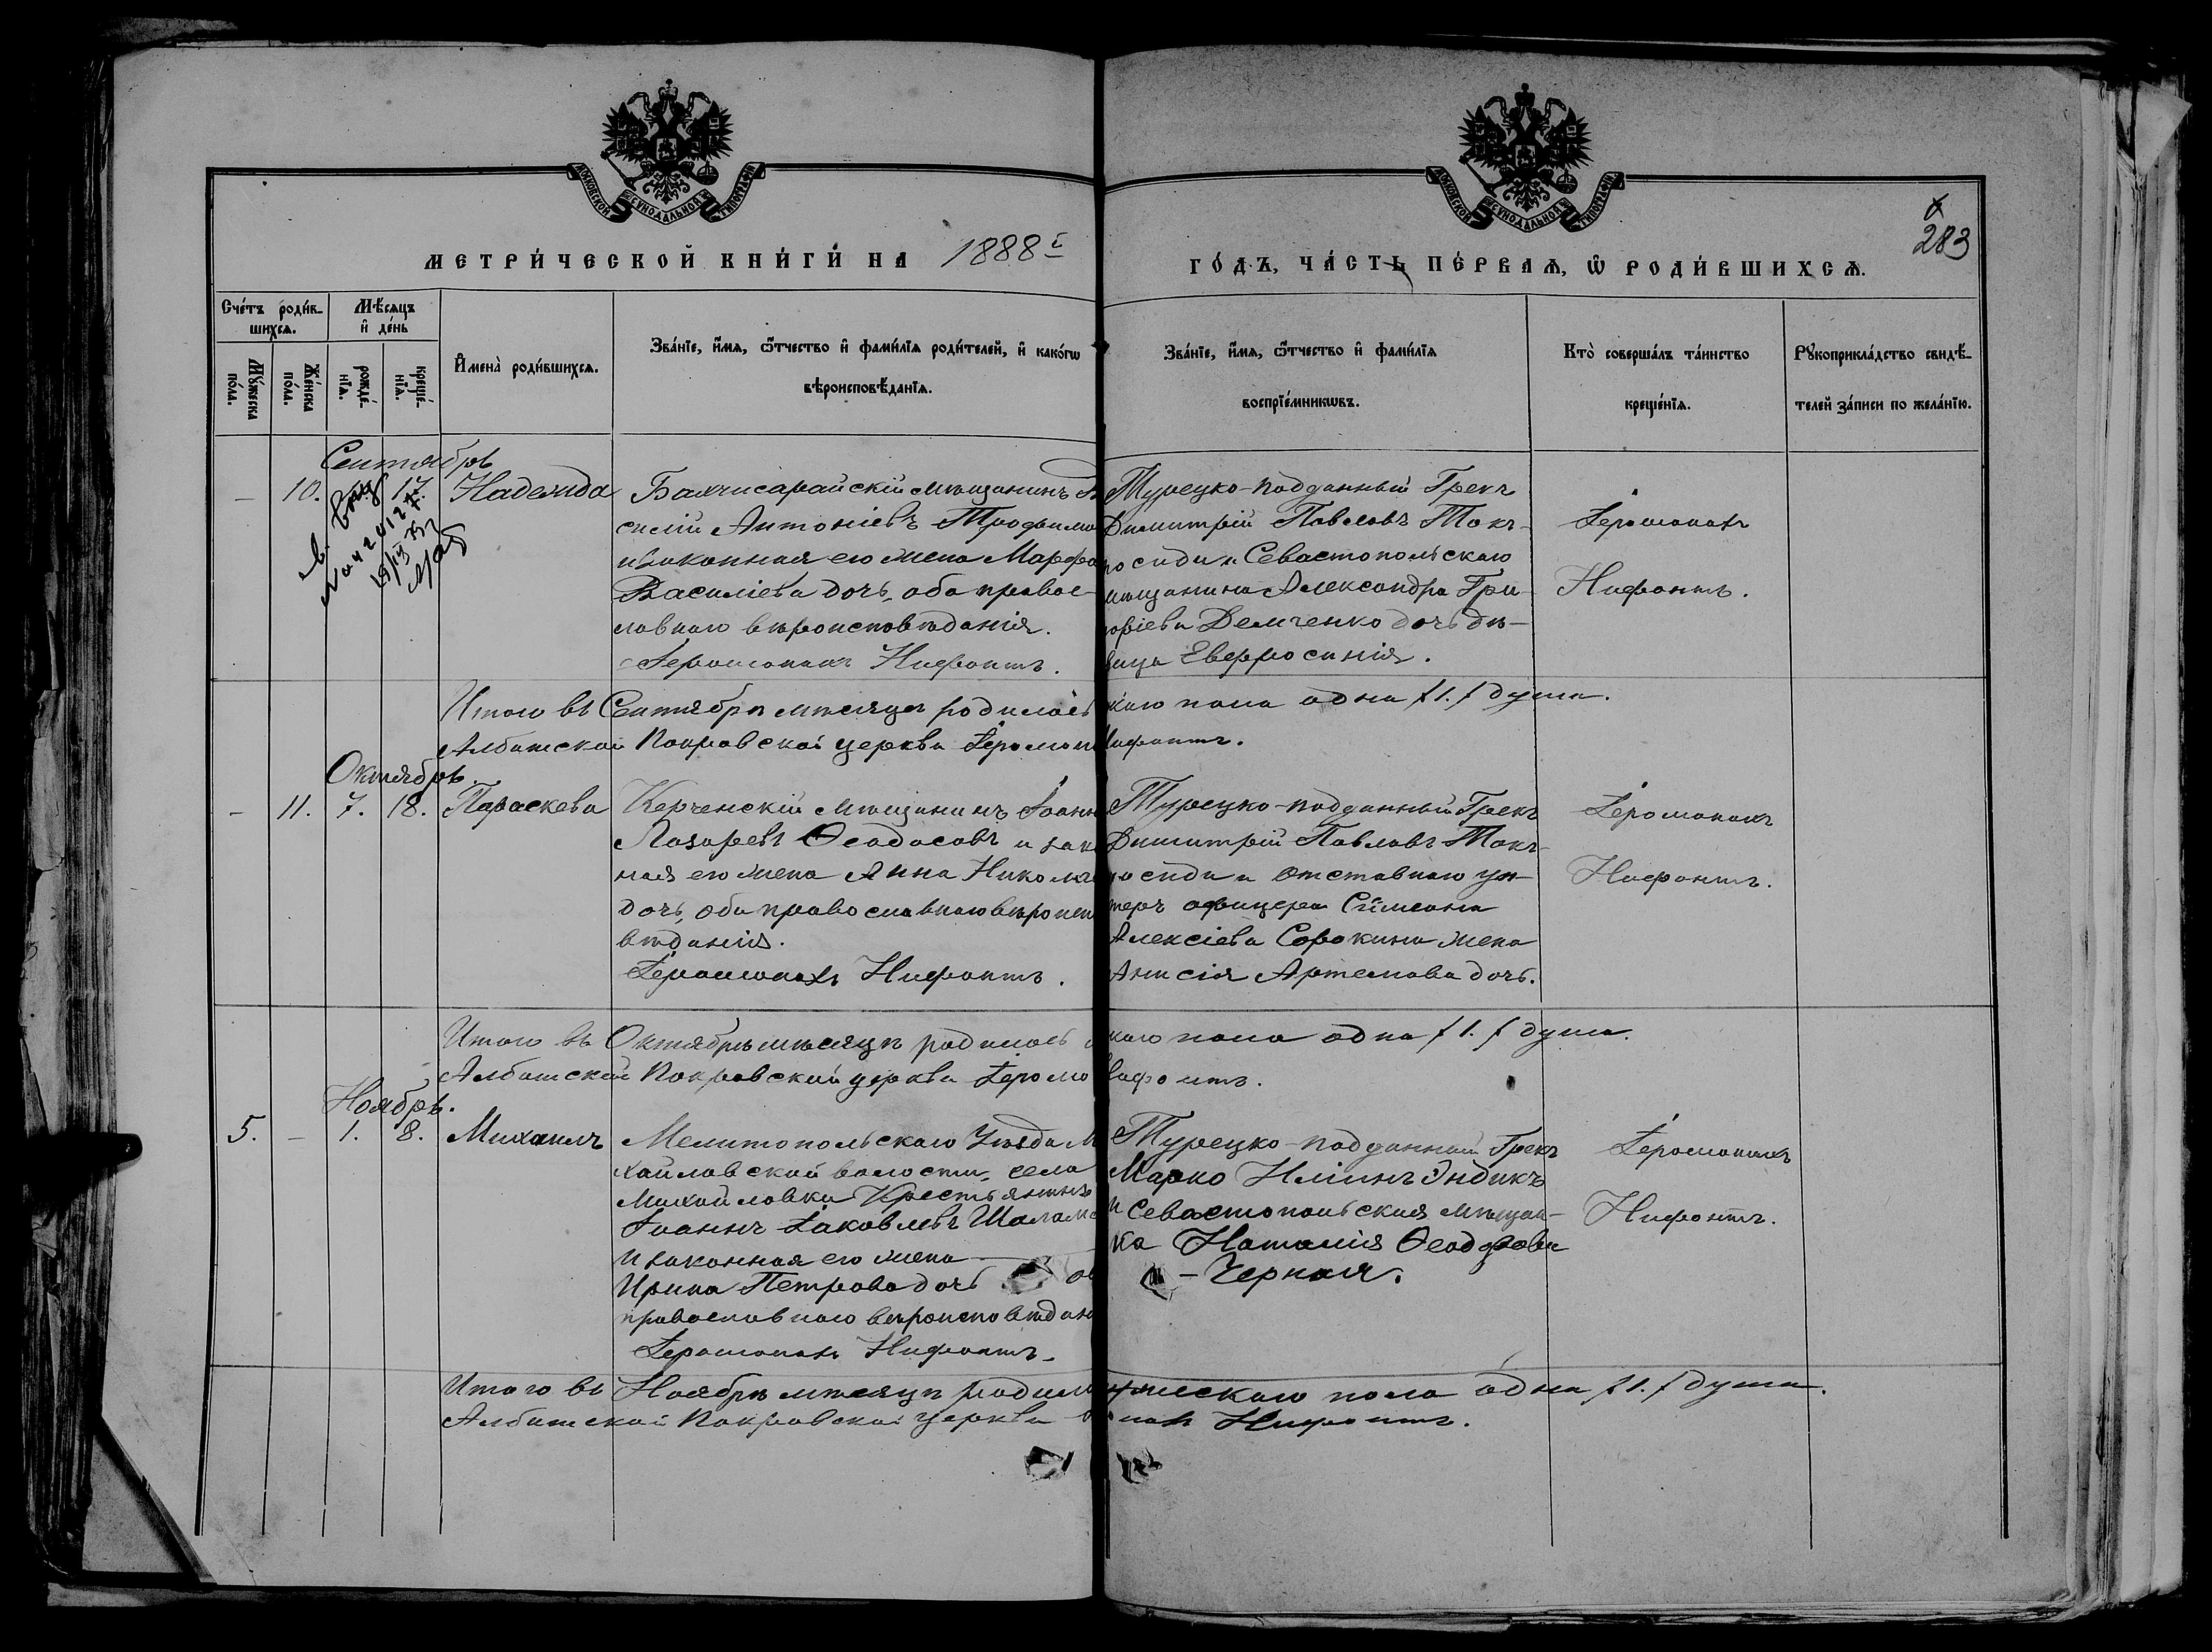 МОСКОВСКОЙ СУНОДАЛЬНОЙ ТИПОГРАФІИ
МОСКОВСКОЙ СУНОДАЛЬНОЙ ТИПОГРАФІИ
283
МЕТРИ́ЧЕСКОЙ КНИ́ГИ НА 1888
ГО́ДЪ, ЧА́СТЬ ПЕ́РВАѦ, Ѡ РОДИ́ВШИХСѦ.
Сче́тъ роди́в-
шихсѧ.
Мѣ́сѧцъ
и҆ де́нь
Мꙋ́жеска
по́ла.
Же́нска
по́ла.
рожде́-
нїѧ.
креще́-
нїѧ.
И҆мена̀ роди́вшихсѧ.
Зва́нїе, и҆́мѧ, ѻ҆́тчество и҆ фами́лїѧ роди́телей, и҆ како́гѡ
вѣроисповѣ́данїѧ.
Зва́нїе, и҆́мѧ, ѻ҆́тчество и҆ фами́лїѧ
воспрїе́мникѡвъ.
Кто̀ соверша́лъ та́инство
креще́нїѧ.
Рꙋкоприкла́дство свидѣ́-
телей за́писи по жела́нїю.
Сентябрь
– 10. 17. Надежда
Бахчисарайскій мѣщанинъ
силій Антоніевъ Трофимо
и законная его жена Марфа
Василіева дочь, оба правос-
лавнаго вѣроисповѣданія.
Іеромонахъ Нифонтъ.
Турецко-подданный Грекъ
Димитрій Павловъ Токъ-
сиди и Севастопольскаго
мѣщанина Александра Гри-
горіева Демченко дочь дѣ-
вица Евфросинія.
Іеромонахъ
Нифонтъ.
Итого въ Сентябрѣ мѣсяцѣ родилось
скаго пола одна /1./ душа.
Албатской Покровской церкви Іеромон
Нифонтъ.
Октябрь.
– 11. 7. 18. Параскева
Керченскій мѣщанинъ Іоаннъ
Лазаревъ Ѳеодосовъ и зак
ная его жена Анна Никола
дочь, оба православнаго вѣроисп
вѣданія.
Іеромонахъ Нифонтъ.
Турецко-подданный Грекъ
Димитрій Павловъ Токъ-
сиди и отставнаго ун-
теръ офицера Сѵмеона
Алексіева Сорокина жена
Анисія Артемова дочь.
Іеромонахъ
Нифонтъ.
Итого въ Октябрѣ мѣсяцѣ родилось
скаго пола одна /1./ душа.
Албатской Покровской церкви Іеромо
Нифонтъ.
Ноябрь.
5. – 1. 8. Михаилъ
Мелитопольскаго Уѣзда М
хайловской волости, села
Михайловки Крестьянинъ
Іоаннъ Іаковлевъ Шалам
и законная его жена
Ирина Петрова дочь
православнаго вѣроисповѣдан
Іеромонахъ Нифонтъ.
Турецко-подданный Грекъ
Марко Иліинъ Эндикъ
и Севастопольская мѣщан-
ка Наталія Ѳеодорова
– Черная.
Іеромонахъ
Нифонтъ.
Итого въ Ноябрѣ мѣсяцѣ родил
мужескаго пола одна /1./ душа.
Албатской Покровской церкви
нахъ Нифонтъ.